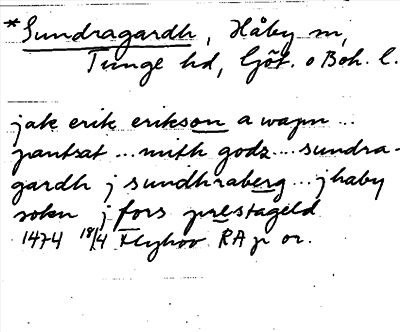 *Sundragardh, Håby sn,
Tunge hd, Göt. o Boh. l.
jak erik erikson a wapn ...
pantsat ... mith godz ... sundra-
gardh j sundhraberg ... j haby
sokn j fors prestageld
1474 18/4 Flyhov RA p or.